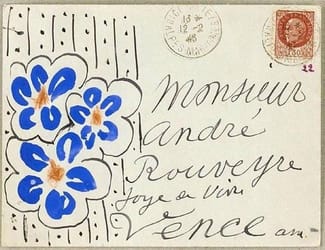 13 *
12 - 2
Monsieur
André
Rouveyre
Joye de Vivre
Vence am.
22